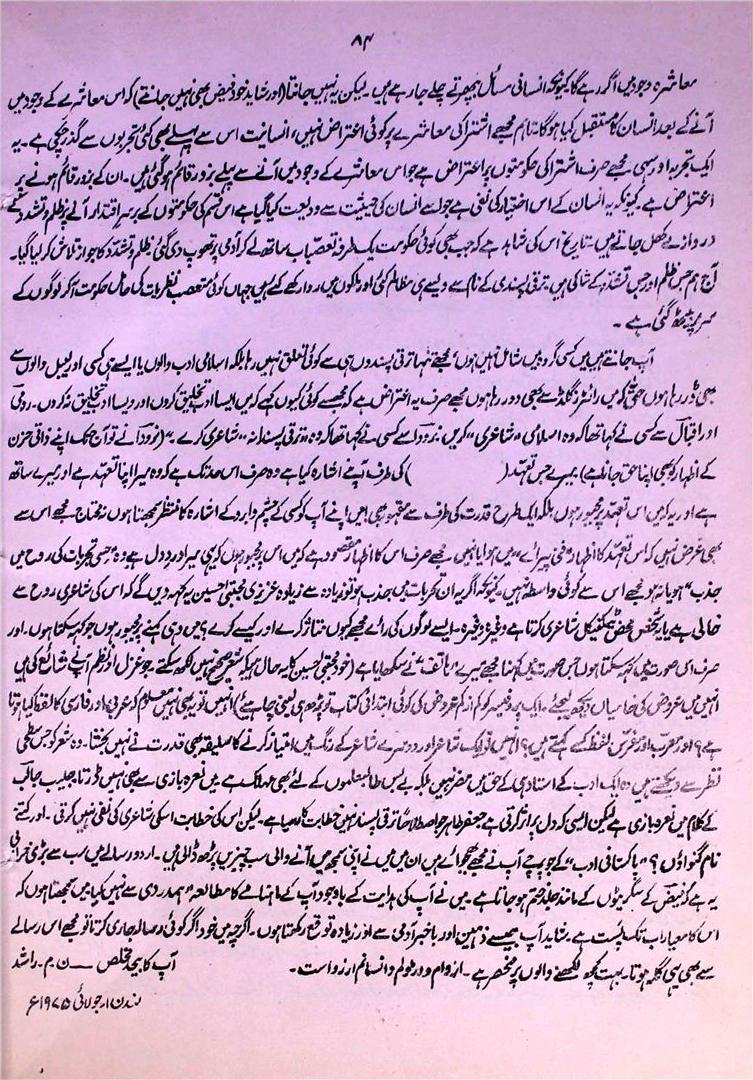 ۸۴
معاشرہ وجود میں آ کر رہے گا کیونکہ انسانی مسائل بپھرتے چلے جا رہے ہیں۔ لیکن یہ نہیں جانتا (اور شاید خود فیض بھی نہیں جانتے) کہ اس معاشرے کے وجود میں
آنے کے بعد انسان کا مستقبل کیا ہو گا تاہم مجھے اشتراکی معاشرے پر کوئی اعتراض نہیں، انسانیت اس سے پہلے بھی کئی تجربوں سے گذر چکی ہے۔ یہ
ایک تجربہ اور سہی مجھے صرف اشتراکی حکومتوں پر اعتراض ہے جو اس معاشرے کے وجود میں آنے سے پہلے بزور قائم ہو گئی ہیں۔ ان کے بزور قائم ہونے پر
اعتراض ہے کیونکہ یہ انسان کے اس اختیار کی نفی ہے جو اسے انسان کی حیثیت سے ودیعت کیا گیا ہے اس قسم کی حکومتوں کے برسر اقتدار آنے پر ظلم و تشدد کے
دروازے کھل جاتے ہیں تاریخ اس کی شاہد ہے کہ جب بھی کوئی حکومت یک طرفہ تعصبات ساتھ لے کر آدمی پر تھوپ دی گئی، ظلم و تشدد کا جواز تلاش کر لیا گیا۔
آج ہم جس ظلم اور جس تشدد کے شاکی ہیں، ترقی پسندی کے نام سے ویسے ہی مظالم کئی اور ملکوں میں روا رکھے گئے ہیں جہاں کوئی متعصب نظریات کی حامل حکومت آ کر لوگوں کے
سر پر بیٹھ گئی ہے۔
آپ جانتے ہیں میں کسی گروہ میں شامل نہیں ہوں، مجھے تنہا ترقی پسندوں ہی سے کوئی تعلق نہیں رہا بلکہ اسلامی ادب والوں یا ایسے ہی کسی اور لیبل والوں سے
بھی دور رہا ہوں حتیٰ کہ میں رائٹرز گلڈ سے بھی دور رہا ہوں مجھے صرف یہ اعتراض ہے کہ مجھ سے کوئی کیوں کہے کہ میں ایسا ادب تخلیق کروں اور ویسا ادب تخلیق نہ کروں۔ رومی
اور اقبال سے کسی نے کہا تھا کہ وہ اسلامی "شاعری" کریں۔ نرودا سے کسی نے کہا تھا کہ وہ "ترقی پسندانہ" شاعری کرے۔ (نرودا نے تو آج تک اپنے ذاتی حزن
کے اظہار کو بھی اپنا حق جانا ہے) میرے جس تعہد ( ) کی طرف آپ نے اشارہ کیا ہے وہ صرف اس حد تک ہے کہ وہ میرا اپنا تعہد ہے اور میرے ساتھ
ہے اور یہ کہ میں اس تعہد پر مجبور ہوں بلکہ ایک طرح قدرت کی طرف سے مقہور بھی ہیں اپنے آپ کو کسی کے چشم و ابرو کے اشارہ کا منتظر سمجھتا ہوں نہ محتاج۔ مجھے اس سے
بھی غرض نہیں کہ اس تعہد کا اظہار "فنی پیرائے" میں ہو یا نہیں مجھے صرف اس کا اظہار مقصود ہے کہ میں اس پر مجبور ہوں کہ یہی میرا درد دل ہے وہ "حسی تجربات کی روح میں
جذب" ہو یا نہ ہو مجھے اس سے کوئی واسطہ نہیں۔ کیونکہ اگر یہ ان تجربات میں جذب ہو تو زیادہ سے زیادہ عزیزی مجتبیٰ حسین یہ کہہ دیں گے کہ اس کی شاعری روح سے
خالی ہے یا یہ شخص محض ٹیکنیکل شاعری کرتا ہے وغیرہ وغیرہ۔ ایسے لوگوں کی رائے مجھے کیوں متاثر کرے اور کیسے کرے؟ میں وہی کہنے پر مجبور ہوں جو کہہ سکتا ہوں۔ اور
صرف اس صورت میں کہہ سکتا ہوں جس صورت میں کہنا مجھے میرے "ہاتف" نے سکھایا ہے (خود مجتبیٰ حسین کا یہ حال ہے کہ شعر صحیح نہیں لکھ سکتے جو غزل اور نظم آپ نے شائع کی ہیں
انہیں میں عروضی کی خامیاں دیکھ لیجئے۔ ایک پروفیسر کو کم از کم عروض کی کوئی ابتدائی کتاب تو پڑھ ہی لینی چاہیے) انہیں تو یہ بھی نہیں معلوم کہ عربی اور فارسی کا لفظ کیا ہوتا
ہے؟ اور معرب اور مفرس لفظ کسے کہتے ہیں؟ انہیں تو ایک شاعر اور دوسرے شاعر کے رنگ میں امتیاز کرنے کا سلیقہ بھی قدرت نے نہیں بخشا۔ وہ شعر کو جس سطحی
نظر سے دیکھتے ہیں وہ ایک ادب کے استاد ہی کے حق میں مضر نہیں بلکہ بے بس طالبعلموں کے لئے بھی مہلک ہے میں نعرہ بازی سے بھی نہیں ڈرتا۔ حبیب جالب
کے کلام میں نعرہ بازی ہے لیکن ایسی کہ دل پر اثر کرتی ہے جعفر طاہر جو اصطلاحاً ترقی پسند نہیں خطابت کا رسیا ہے لیکن اس کی خطابت اسکی شاعری کی نفی نہیں کرتی۔ اور کتنے
نام گنواؤں؟ "پاکستانی ادب" کے جو پرچے آپ نے مجھے بھجوائے ہیں ان میں میں نے اپنی سمجھ میں آنے والی سب چیزیں پڑھ ڈالی ہیں۔ اردو رسالے میں سب سے بڑی خرابی
یہ ہے کہ فیض کے سگریٹوں کے مانند جلد ختم ہو جاتا ہے۔ میں نے آپ کی ہدایت کے باوجود آپ کے ماہنامے کا مطالعہ "ہمدردی سے نہیں کیا میں سمجھتا ہوں کہ
اس کا معیار اب تک پست ہے۔ شاید آپ جیسے ذہین اور باخبر آدمی سے اور زیادہ توقع رکھتا ہوں۔ اگرچہ میں خود اگر کوئی رسالہ جاری کرتا تو مجھے اس رسالے
سے بھی یہی گلہ ہوتا۔ بہت کچھ لکھنے والوں پر منحصر ہے۔ آپ کا بیحد مخلص — ن۔م۔ راشد
لندن ۱ر جولائی ۱۹۷۵ء